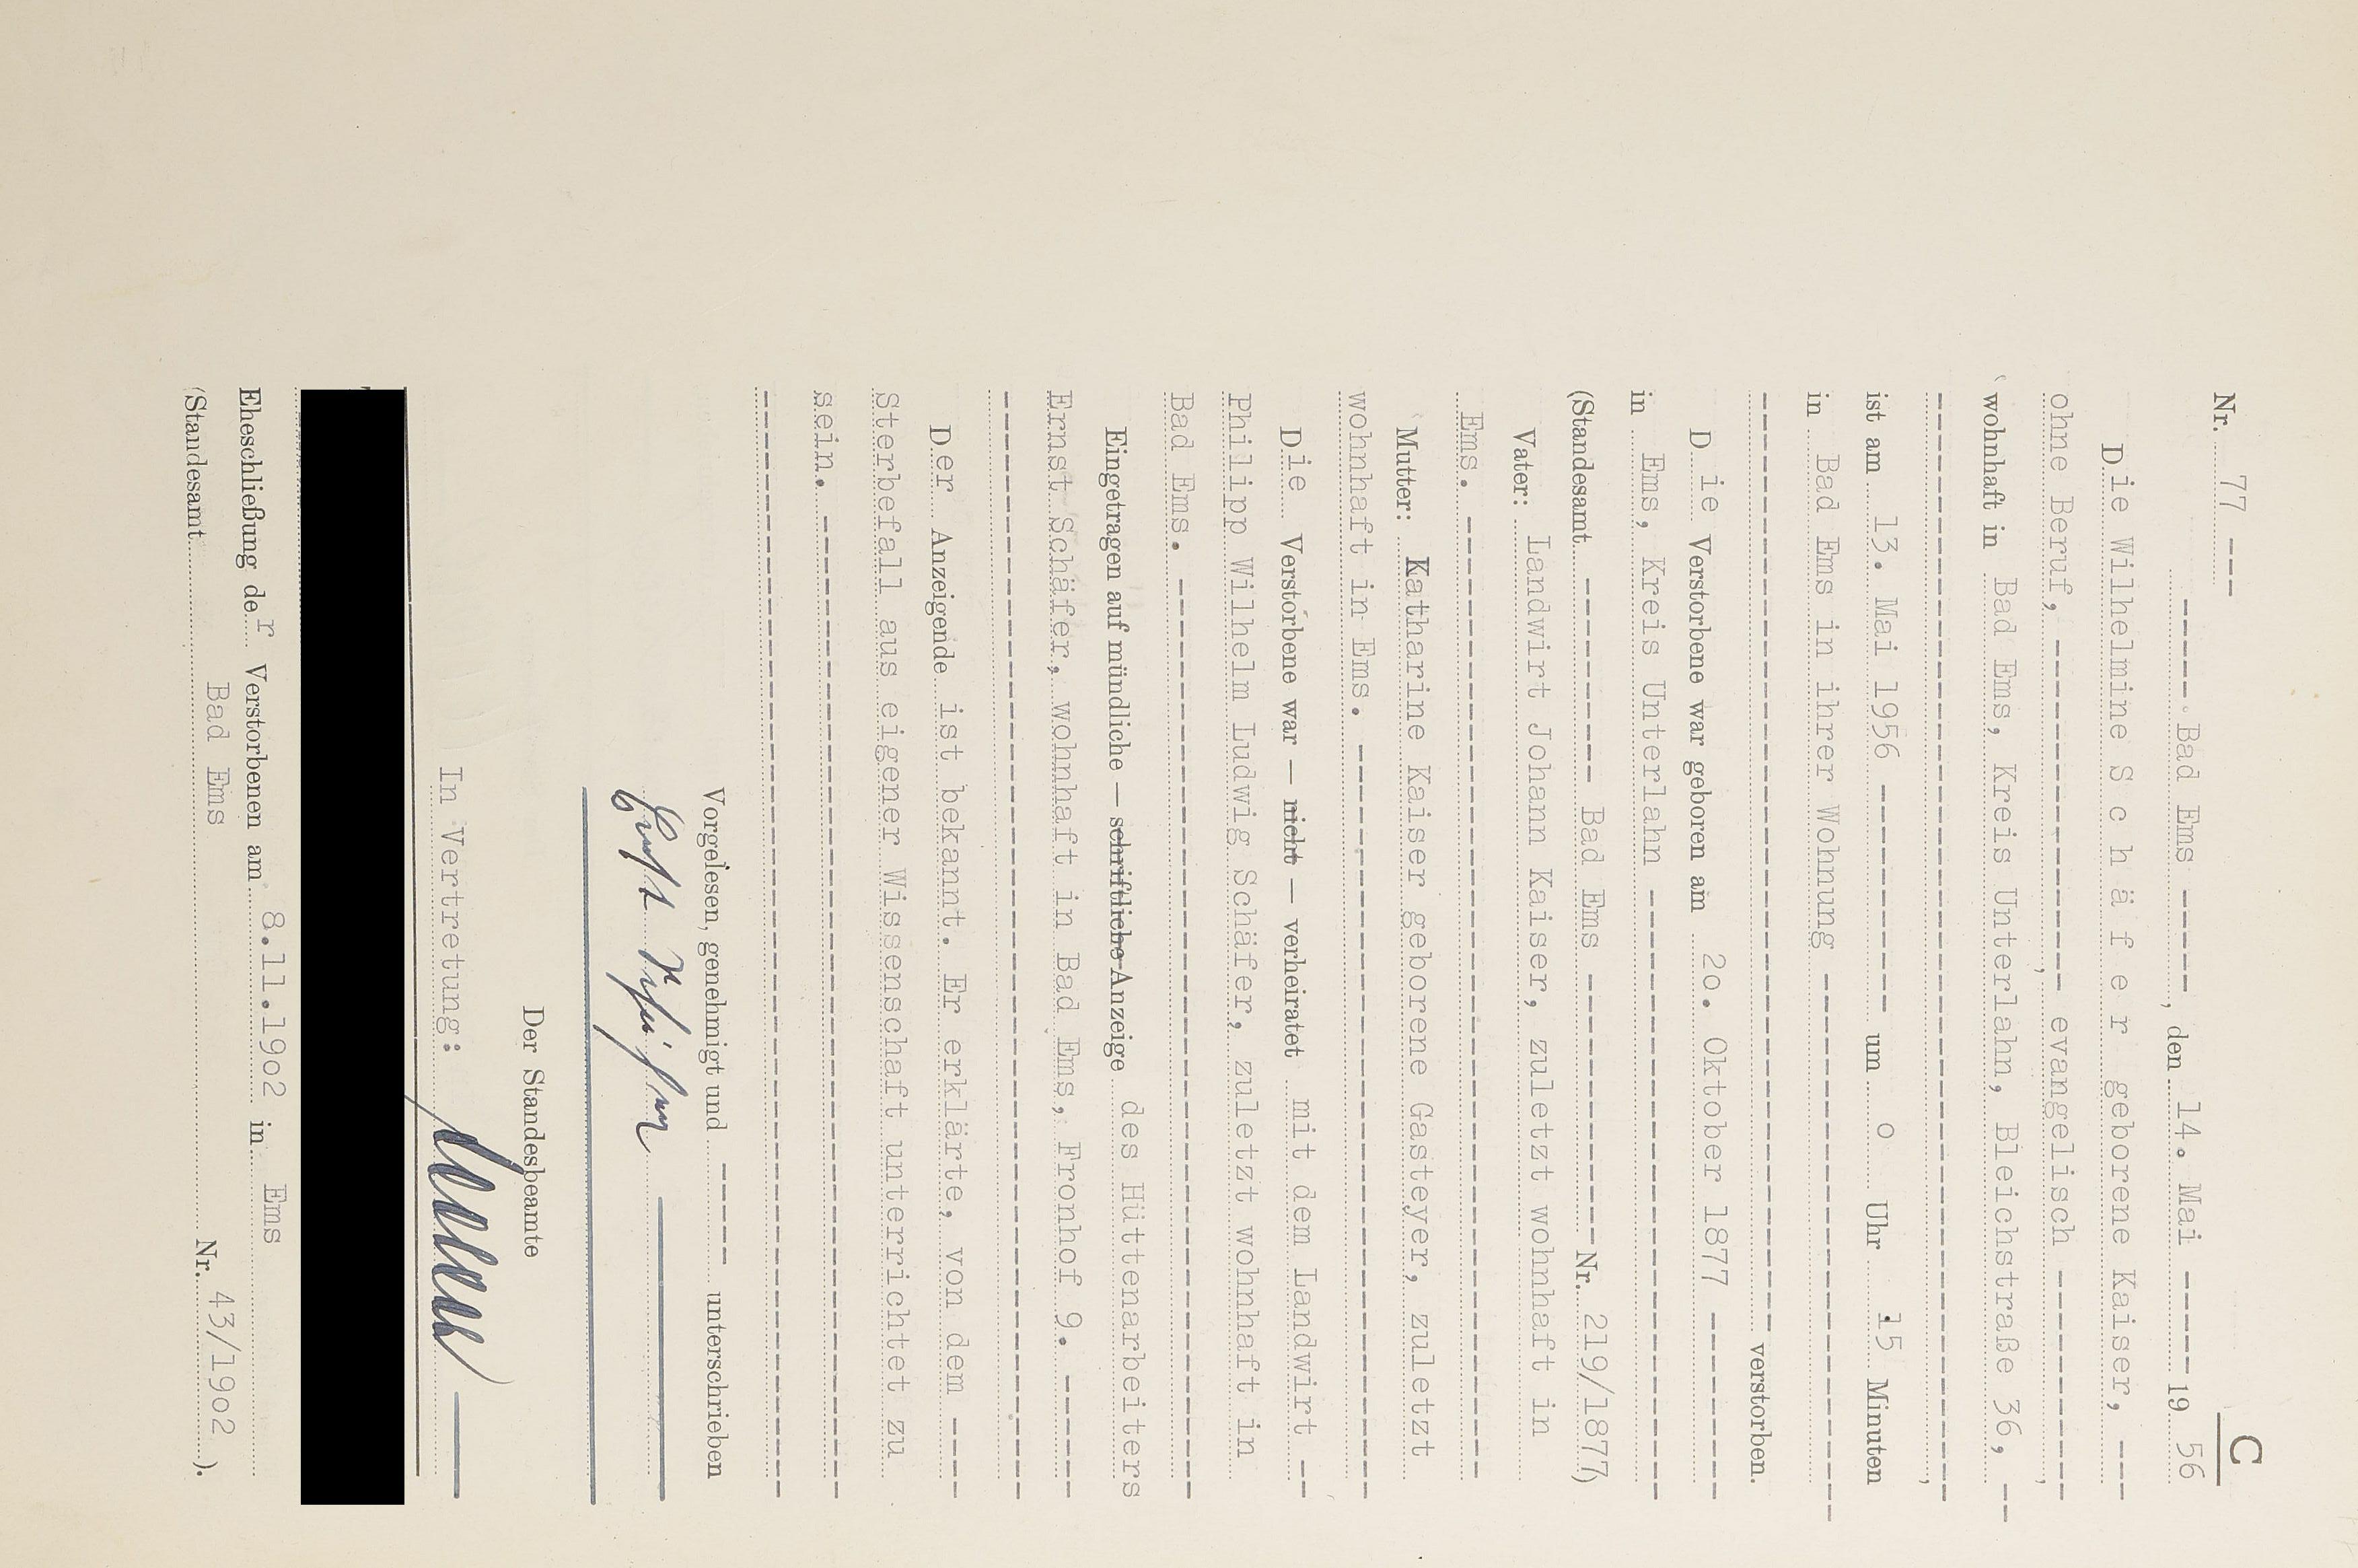 C
Nr. 77 ---
----- Bad Ems -----, den 14. Mai ----- 19 56
Die Wilhelmine S c h ä f e r geborene Kaiser, ---
ohne Beruf, -----------------, evangelisch -----------,
wohnhaft in Bad Ems, Kreis Unterlahn, Bleichstraße 36, --
-------------------------------------------------------,
ist am 13. Mai 1956 ----------- um o Uhr 15 Minuten
in Bad Ems in ihrer Wohnung --------------------------
------------------------------------------------ verstorben.
Die Verstorbene war geboren am 2o. Oktober 1877 ---------
in Ems, Kreis Unterlahn ------------------------------
(Standesamt ---------- Bad Ems ------------- Nr. 219/1877)
Vater: Landwirt Johann Kaiser, zuletzt wohnhaft in
Ems. -------------------------------------------------
Mutter: Katharine Kaiser geborene Gasteyer, zuletzt
wohnhaft in Ems. -------------------------------------
Die Verstorbene war — nicht — verheiratet mit dem Landwirt --
Philipp Wilhelm Ludwig Schäfer, zuletzt wohnhaft in
Bad Ems. ---------------------------------------------
Eingetragen auf mündliche — schriftliche Anzeige des Hüttenarbeiters
Ernst Schäfer, wohnhaft in Bad Ems, Fronhof 9. ------
-------------------------------------------------------
Der Anzeigende ist bekannt. Er erklärte, von dem ----
Sterbefall aus eigener Wissenschaft unterrichtet zu
sein. -------------------------------------------------
-------------------------------------------------------
Vorgelesen, genehmigt und ----- unterschrieben
Ernst Schäfer
Der Standesbeamte
In Vertretung:
Eheschließung der Verstorbenen am 8.11.19o2 in Ems
(Standesamt Bad Ems Nr. 43/19o2 ).